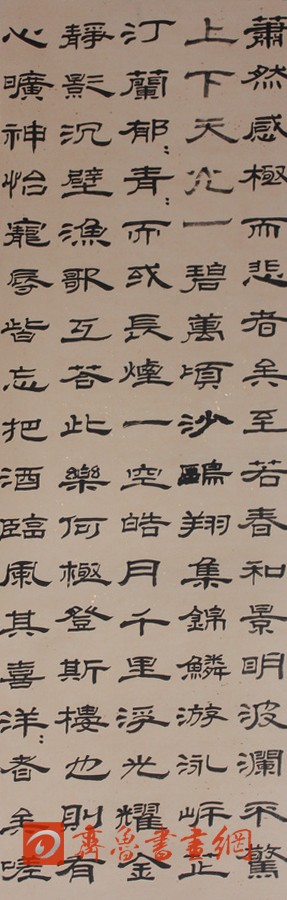 蕭然感極而悲者矣至若春和景明波瀾不驚
上下天光一碧萬頃沙鷗翔集錦鱗游泳岸芷
汀蘭郁：青：而或長煙一空皓月千里浮光耀金
靜影沉壁漁歌互答此樂何極登斯樓也則有
心曠神怡寵辱皆忘把酒臨風其喜洋：者矣嗟
齊魯書畫網